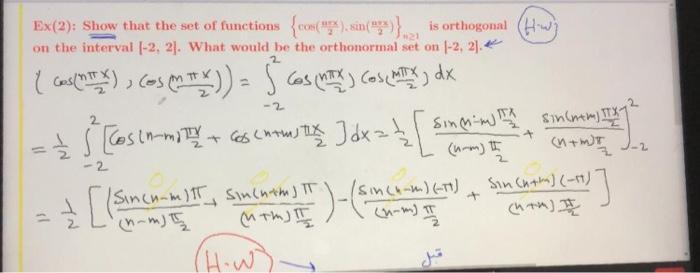 Ex(2): Show that the set of functions {cos(nπx/2), sin(nπx/2)}n≥1 is orthogonal (H-w)
on the interval [-2, 2]. What would be the orthonormal set on [-2, 2].
(cos(nπx/2), cos(mπx/2)) = ∫_{-2}^{2} cos(nπx/2) cos(mπx/2) dx
= 1/2 ∫_{-2}^{2} [cos(n-m)πx/2 + cos(n+m)πx/2] dx = 1/2 [ sin(n-m)πx/2 / (n-m)π/2 + sin(n+m)πx/2 / (n+m)π/2 ]_{-2}^{2}
= 1/2 [ ( sin(n-m)π / (n-m)π/2 + sin(n+m)π / (n+m)π/2 ) - ( sin(n-m)(-π) / (n-m)π/2 + sin(n+m)(-π) / (n+m)π/2 ) ]
(H.w) → قبل